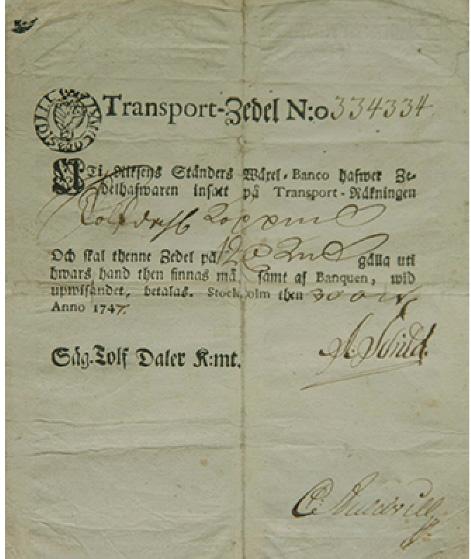 Transport-Zedel N:o 334334
Uti Riksens Ständers Wäxel-Banco hafwer Ze-
delhafwaren insatt på Transport-Räkningen
Tolf
Och skal thenne Zedel på gälla uti
hwars hand then finnas må, samt af Banquen, wid
upwisandet, betalas. Stockholm then
Anno 1747.
Säg. Tolf Daler K:mt.